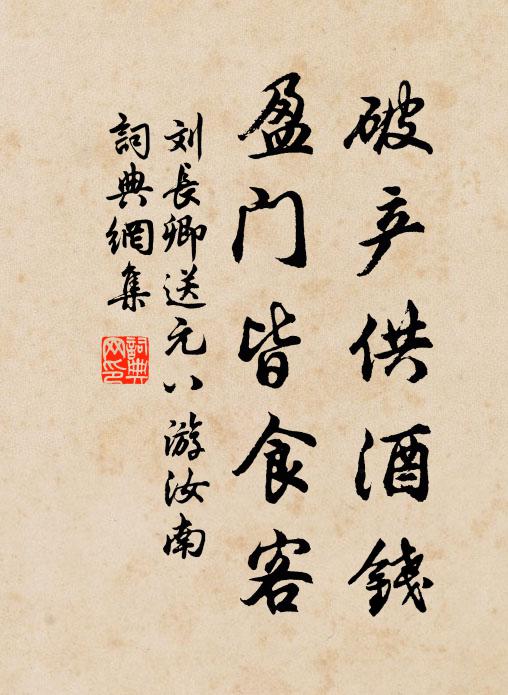 破产供酒钱
盈门皆食客
刘长卿送元八游汝南
词典網集
詞典网印